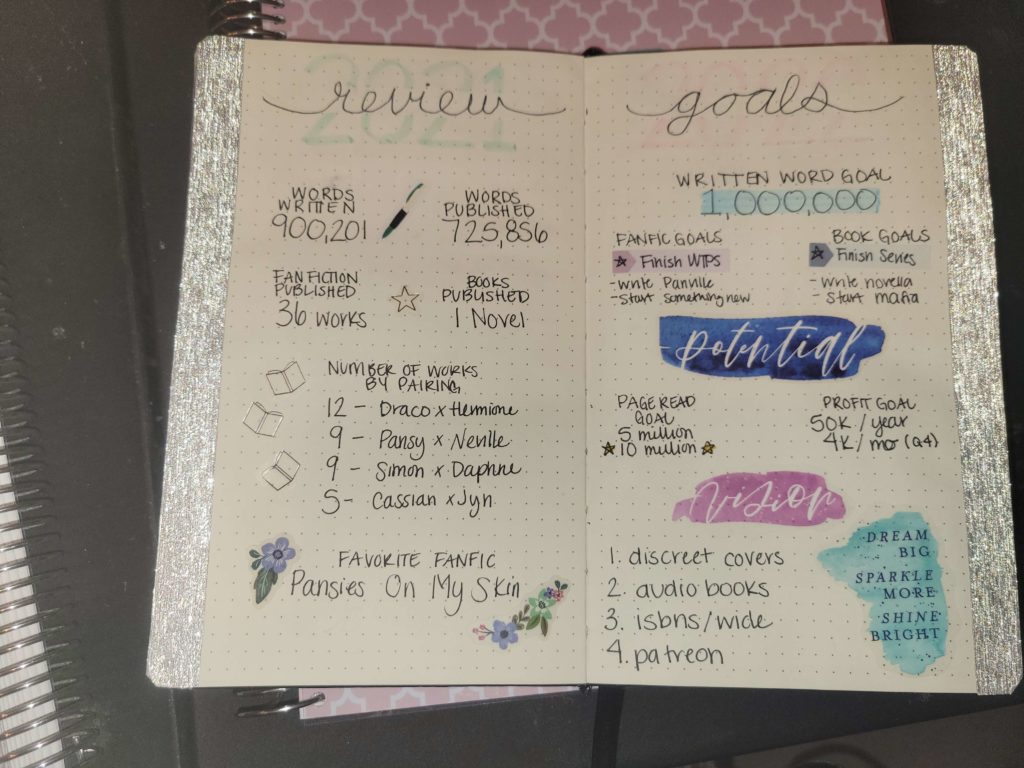 2021
review
WORDS
WRITTEN
900,201
WORDS
PUBLISHED
725,856
FAN FICTION
PUBLISHED
36 WORKS
BOOKS
PUBLISHED
1 Novel
NUMBER OF WORKS
BY PAIRING
12 - Draco x Hermione
9 - Pansy x Neville
9 - Simon x Daphne
5 - Cassian x Jyn
FAVORITE FANFIC
Pansies On My Skin
2022
goals
WRITTEN WORD GOAL
1,000,000
FANFIC GOALS
Finish WIPS
- Write Panville
- Start something new
BOOK GOALS
Finish Series
- Write novella
- Start mafia
potential
PAGE READ
GOAL
5 million
10 million
PROFIT GOAL
50K / year
4K / mo (Q4)
vision
1. discreet covers
2. audio books
3. isbns/wide
4. patreon
DREAM
BIG
SPARKLE
MORE
SHINE
BRIGHT